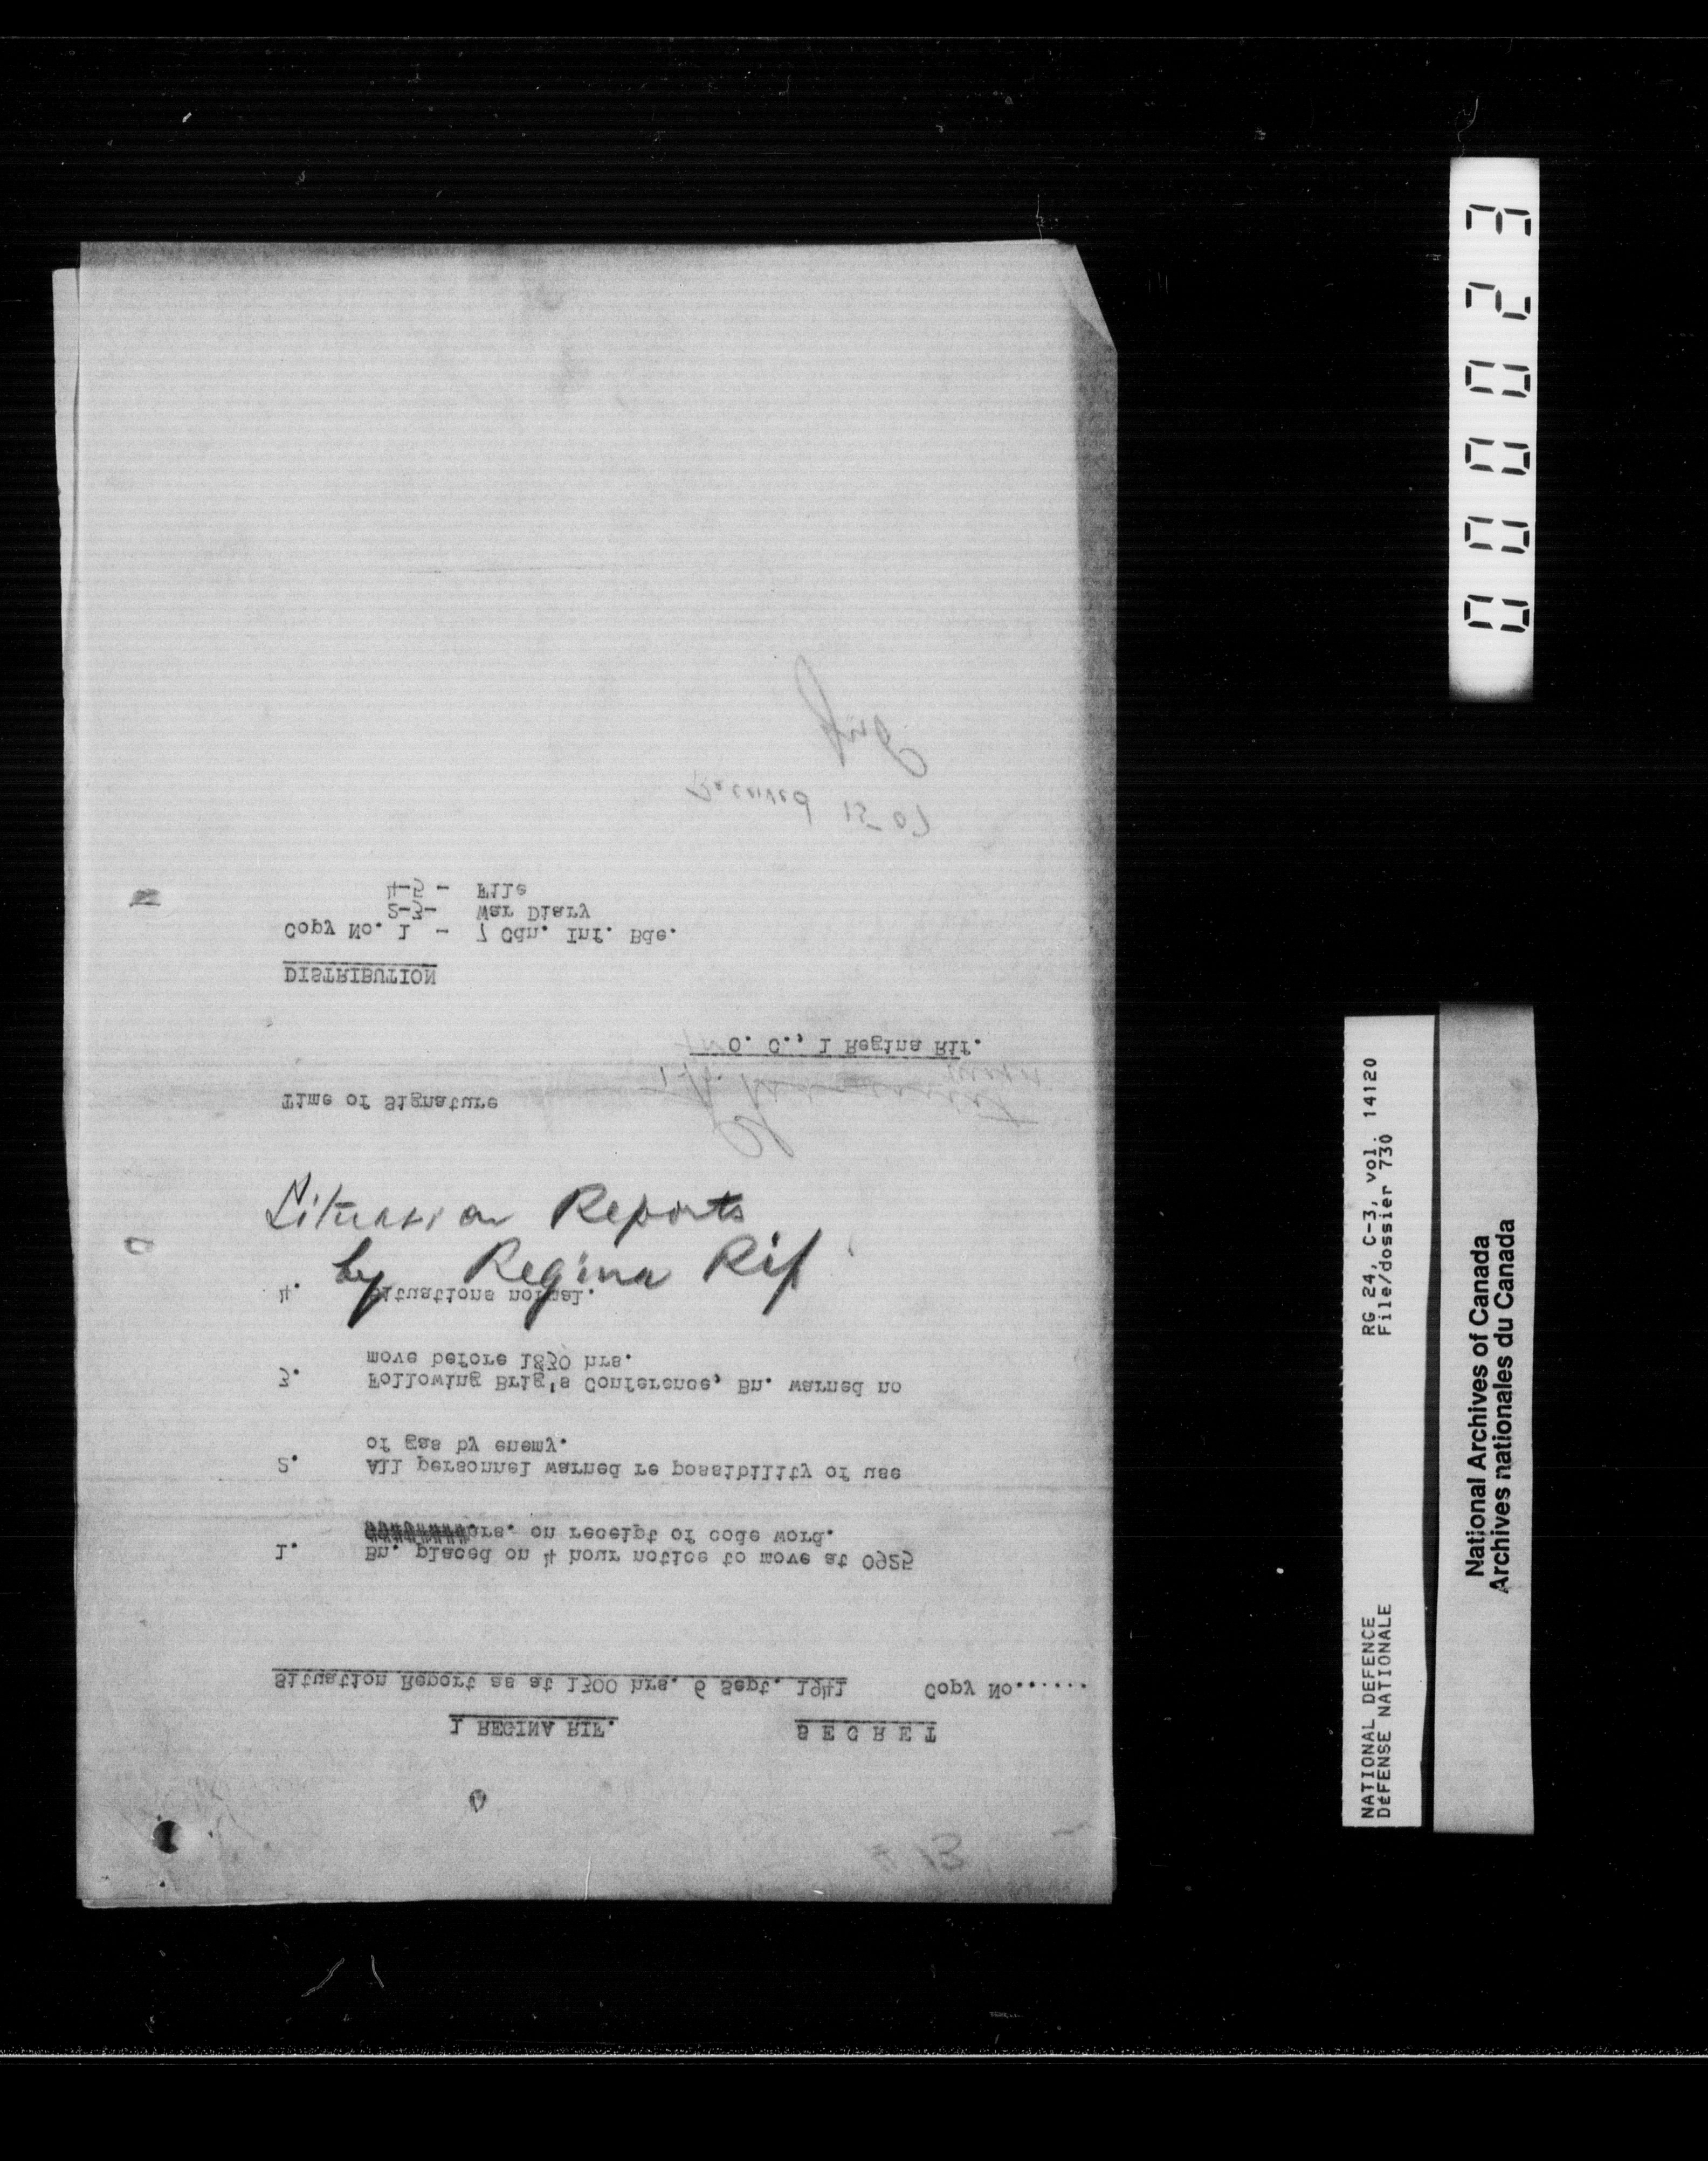 1 REGINA RIF.
S E C R E T
Situation Report as at 1300 hrs. 6 Sept. 1941
Copy No......
1. Bn. placed on 4 hour notice to move at 0925
hrs. on receipt of code word.
2. All personnel warned re possibility of use
of gas by enemy.
3. Following Brig's Conference, Bn. warned no
move before 1830 hrs.
4. Situations normal.
Situasion Reports
by Regina Rif
Time of Signature
O. C., 1 Regina Rif.
DISTRIBUTION
Copy No. 1 - 7 Cdn. Inf. Bde.
2-3- War Diary
4-5 - File
Received 15 07
000023
NATIONAL DEFENCE RG 24, C-3, vol. 14120
DÉFENSE NATIONALE File/dossier 730
National Archives of Canada
Archives nationales du Canada